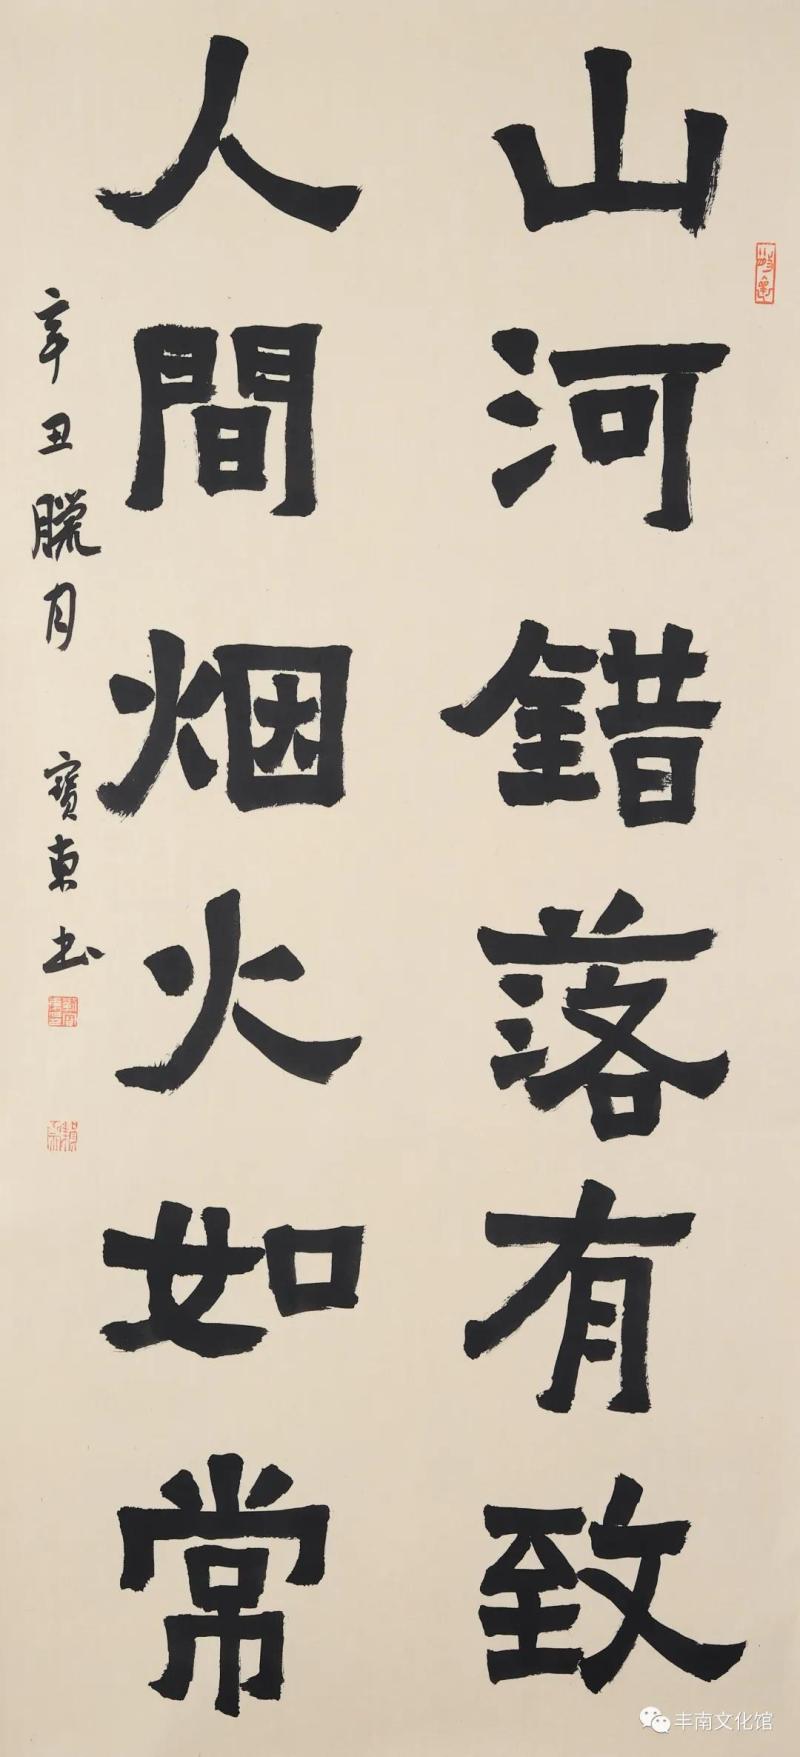 山河錯落有致
人間烟火如常
辛丑臘月 寶東书
丰南文化馆